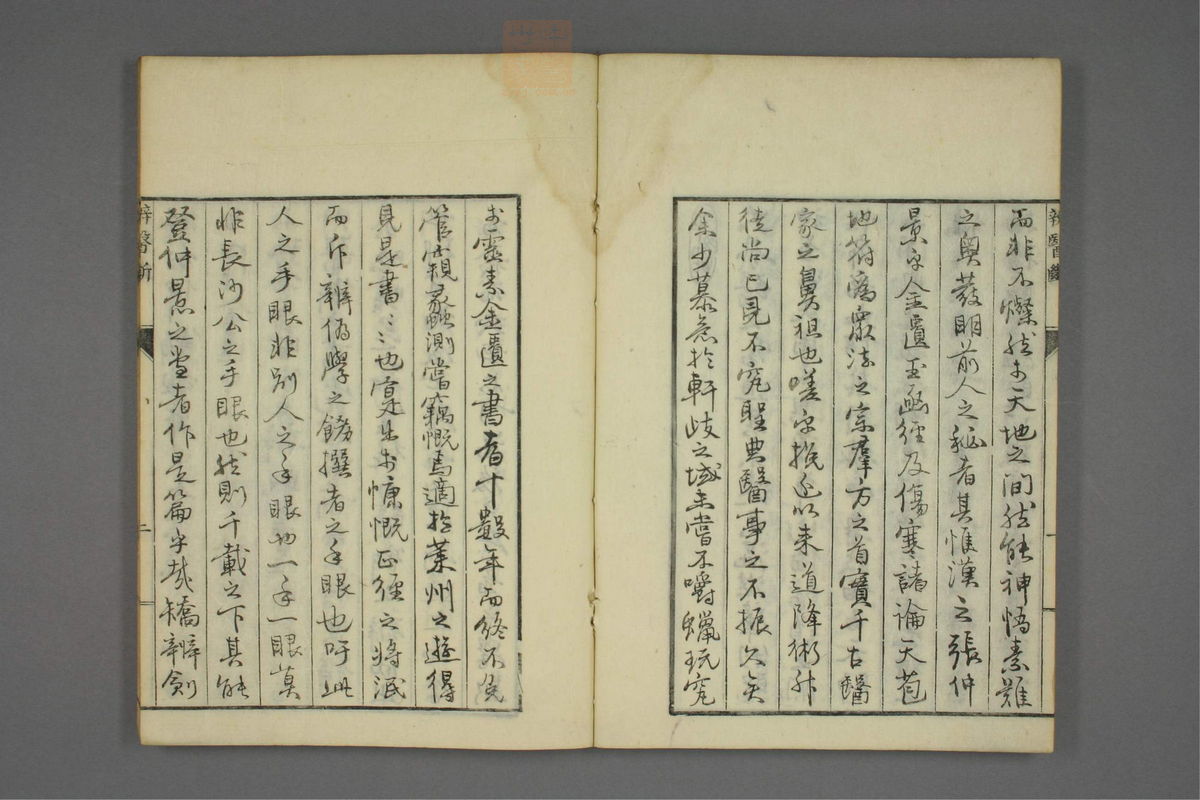 而非不燦然于天地之間然能神悟素難
之奧發明前人之秘者其惟漢之張仲
景乎金匱玉函經及傷寒諸論天苞
地符為眾法之宗群方之首實千古醫
家之鼻祖也嗟乎挽近以來道降術舛
徒尚已見不究聖典醫事之不振久矣
余少慕意於軒岐之域未嘗不嚼蠟玩究
于靈素金匱之書者十數年而終不免
管窺蠡測嘗竊慨焉適於葉州之遊得
見是書〻〻也寔出于慷慨正經之將泯
而斥辨偽學之餝撰者之手眼也吁此
人之手眼非別人之手眼也一手一眼莫
非長沙公之手眼也然則千載之下其能
登仲景之堂者作是篇乎哉矯辨劍
辨醫斷
一
辨醫斷
二